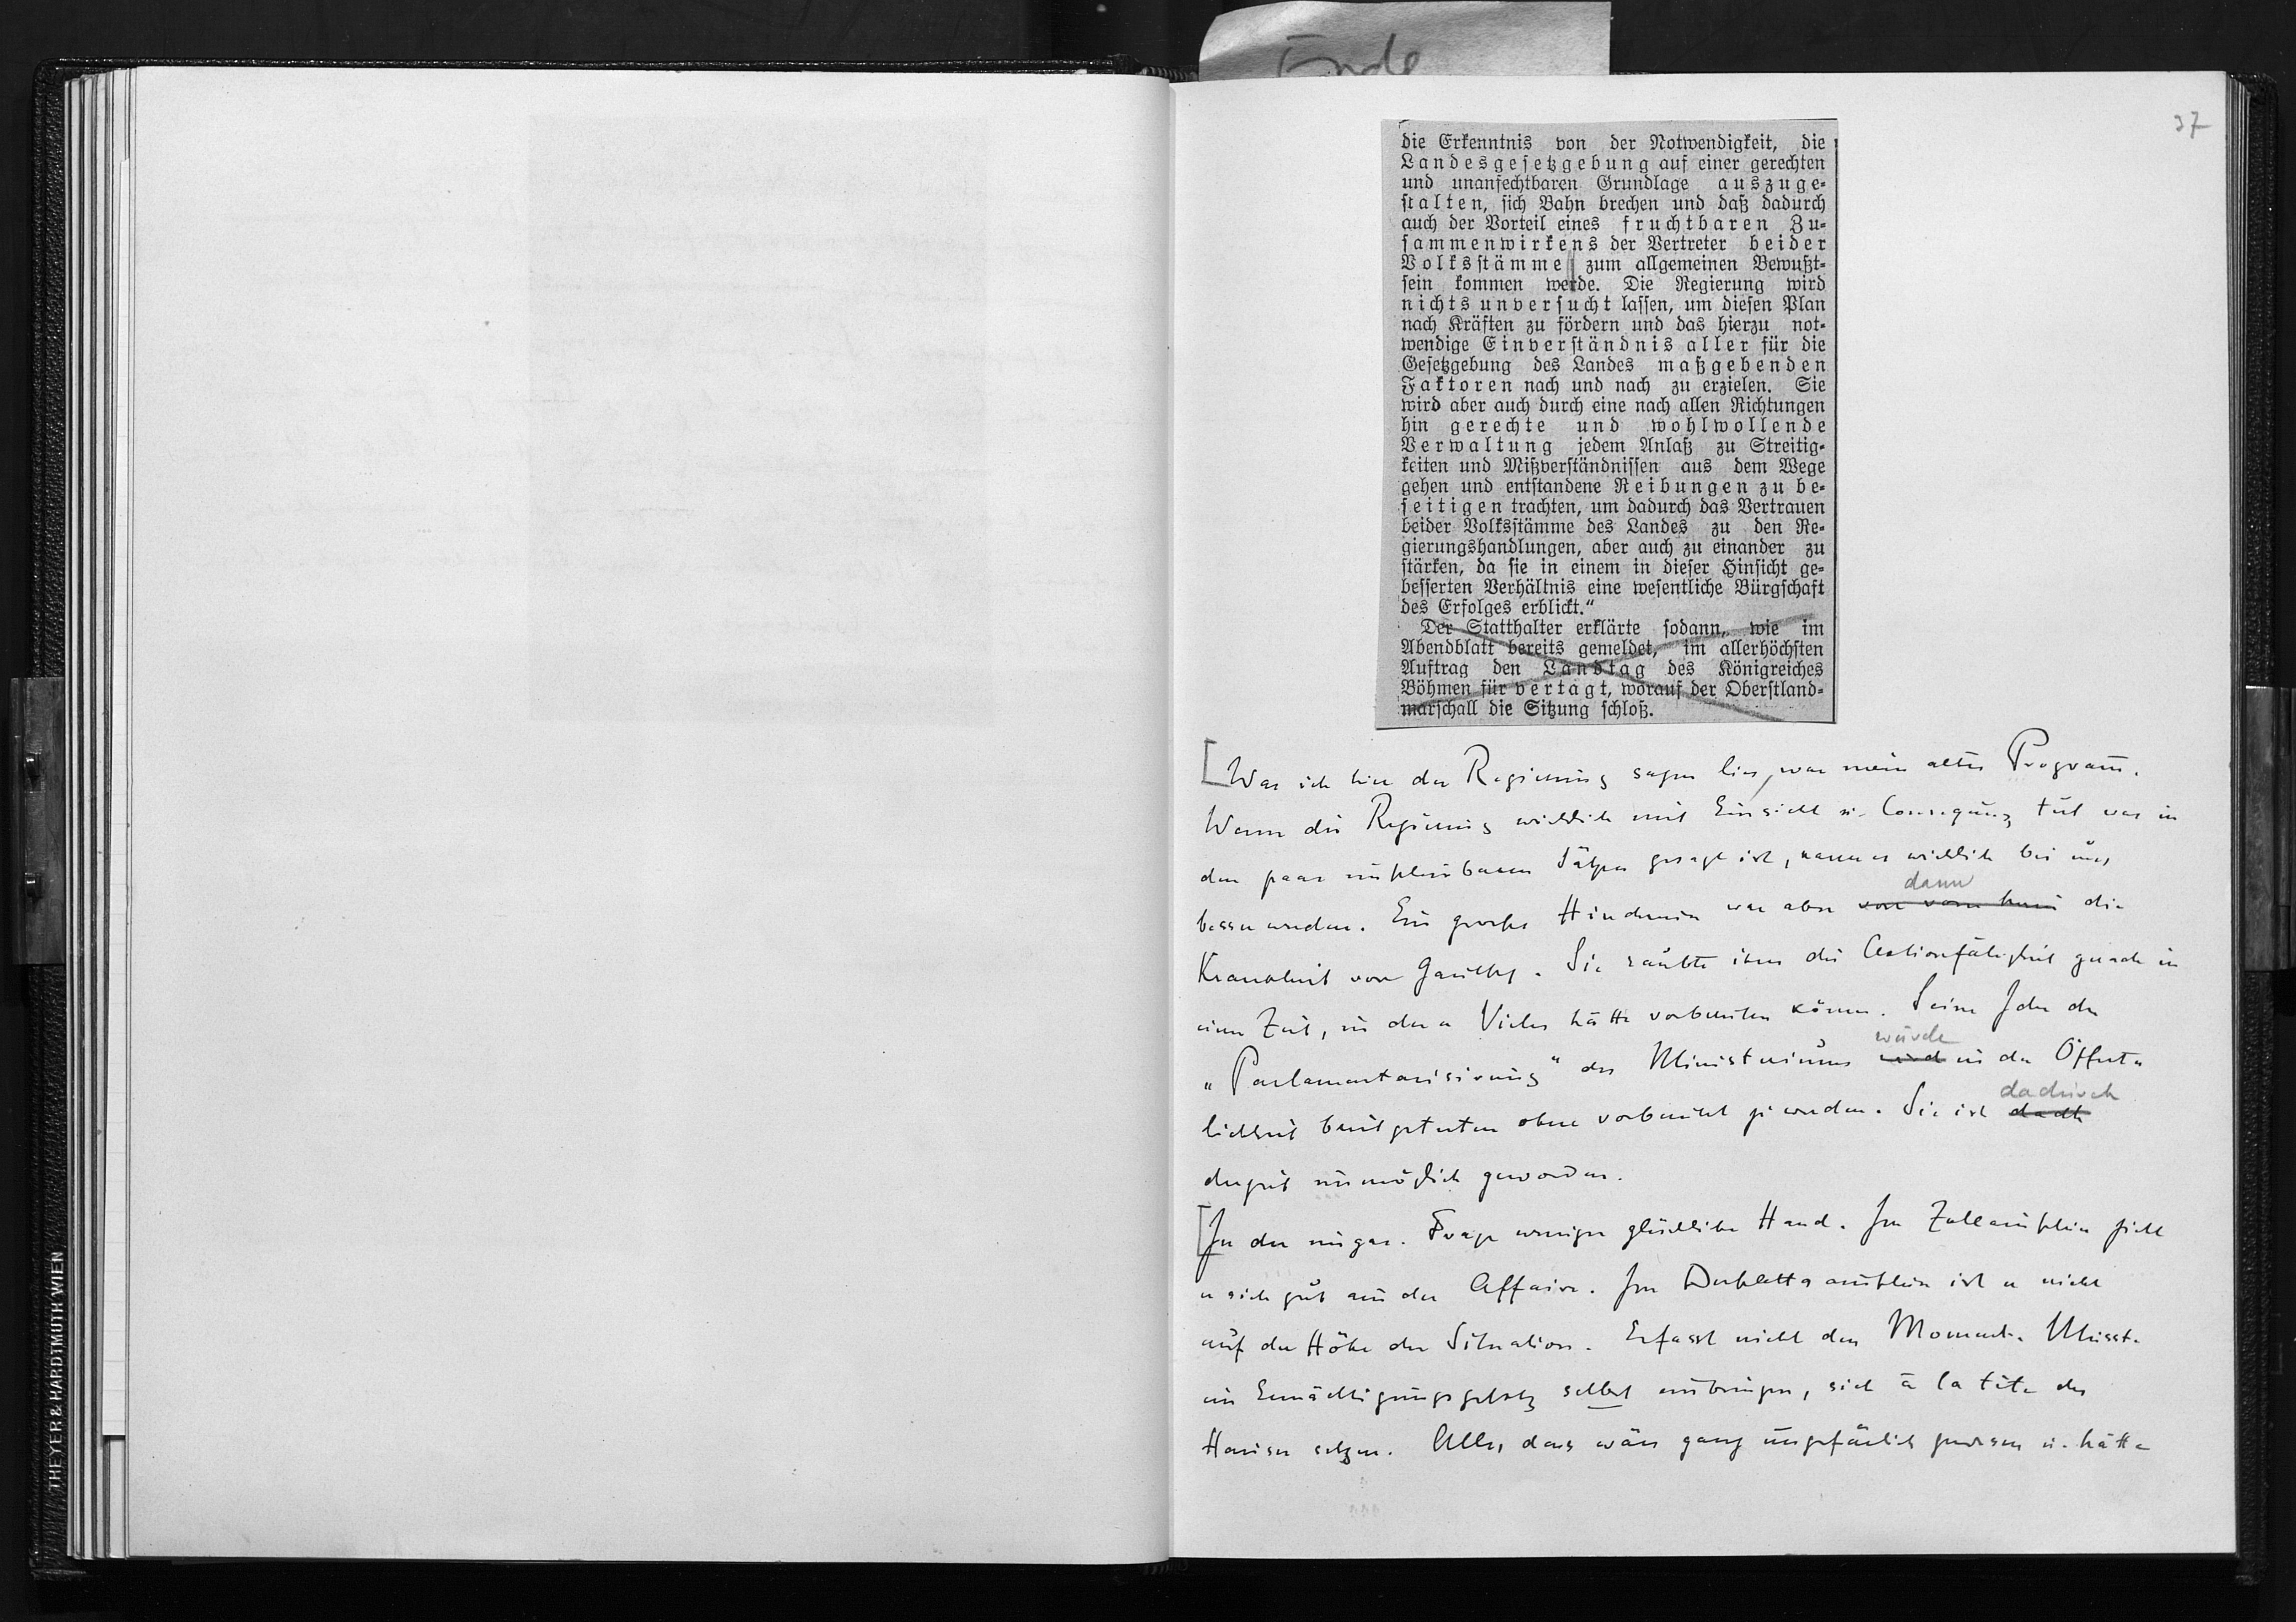 Ende
37
die Erkenntnis von der Notwendigkeit, die
Landesgesetzgebung auf einer gerechten
und unanfechtbaren Grundlage auszuge-
stalten, sich Bahn brechen und daß dadurch
auch der Vorteil eines fruchtbaren Zu-
sammenwirkens der Vertreter beider
Volksstämme zum allgemeinen Bewußt-
sein kommen werde. Die Regierung wird
nichts unversucht lassen, um diesen Plan
nach Kräften zu fördern und das hierzu not-
wendige Einverständnis aller für die
Gesetzgebung des Landes maßgebenden
Faktoren nach und nach zu erzielen. Sie
wird aber auch durch eine nach allen Richtungen
hin gerechte und wohlwollende
Verwaltung jedem Anlaß zu Streitig-
keiten und Mißverständnissen aus dem Wege
gehen und entstandene Reibungen zu be-
seitigen trachten, um dadurch das Vertrauen
beider Volksstämme des Landes zu den Re-
gierungshandlungen, aber auch zu einander zu
stärken, da sie in einem in dieser Hinsicht ge-
besserten Verhältnis eine wesentliche Bürgschaft
des Erfolges erblickt.“
Der Statthalter erklärte sodann, wie im
Abendblatt bereits gemeldet, im allerhöchsten
Auftrag den Landtag des Königreiches
Böhmen für vertagt, worauf der Oberstland-
marschall die Sitzung schloß.
[Was ich hier der Regierung sagen lies, war mein altes Program̅.
Wenn die Regierung wirklich mit Einsicht u. Consequenz tut was in
den paar unscheinbaren Sätzen gesagt ist, kann es wirklich bei uns
besser werden. Ein großes Hindernis war aber von vorn herein die
dann
Krankheit von Gautsch. Sie raubte ihm die Actionsfähigkeit gerade in
einer Zeit, in der er Vieles hätte vorbereiten können. Seine Idee der
„Parlamentarisirung“ des Ministeriums wird in der Öffent-
wurde
lichkeit breitgetreten ohne vorbereitet zu werden. Sie ist
dadurch
derzeit unmöglich geworden.
[In der ungar. Frage weniger glückliche Hand. Im Zollausschuss zieht
er sich gut aus der Affaire. Im Derschattaausschuss ist er nicht
auf der Höhe der Situation. Erfasst nicht den Moment. Musste
ein Ermächtigungsgesetz selbst einbringen, sich à la tête des
Hauses setzen. Alles das wäre ganz ungefährlich gewesen u. hätte
THEYER & HARDTMUTH WIEN